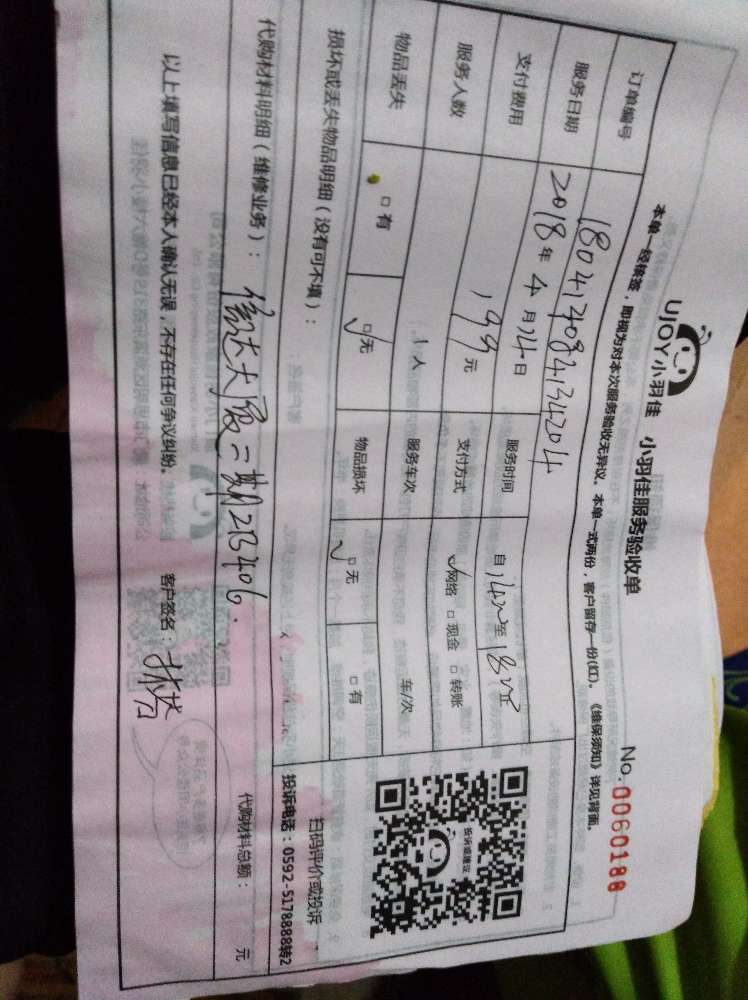 UJOY小羽佳 小羽佳服务验收单
No.0060188
本单一经核签，即视为对本次服务验收无异议。本单一式两份，客户留存一份(红)。《维保须知》详见背面。
订单编号 18041408413204
服务日期 2018年4月14日 服务时间 自14:00至18:00
支付费用 199元 支付方式 ☑网络 □现金 □转账
服务人数 1人 服务车次 车/次
物品丢失 □有 ☑无 物品损坏 ☑无 □有
投诉或建议
扫码评价或投诉
投诉电话：0592-5178888转2
损坏或丢失物品明细（没有可不填）：
代购材料明细（维修业务）： 信达大厦二期2B406. 代购材料总额： 元
以上填写信息已经本人确认无误，不存在任何争议纠纷。 客户签名：